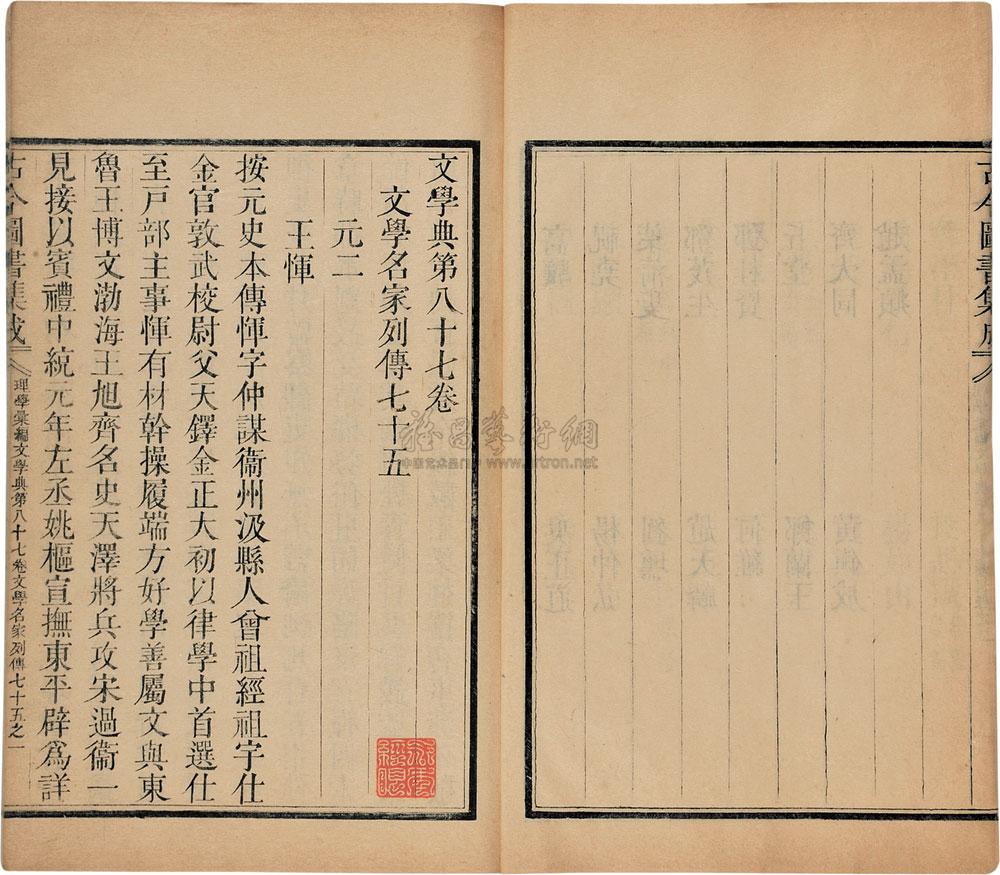 古今圖書集成
文學典第八十七卷
文學名家列傳七十五
元二
王惲
按元史本傳惲字仲謀衞州汲縣人曾祖經祖宇仕
金官敦武校尉父天鐸金正大初以律學中首選仕
至戸部主事惲有材幹操履端方好學善屬文與東
魯王博文渤海王旭齊名史天澤將兵攻宋過衞一
見接以賓禮中統元年左丞姚樞宣撫東平辟爲詳
古今圖書集成
理學彙編文學典第八十七卷文學名家列傳七十五之一
www.artron.net